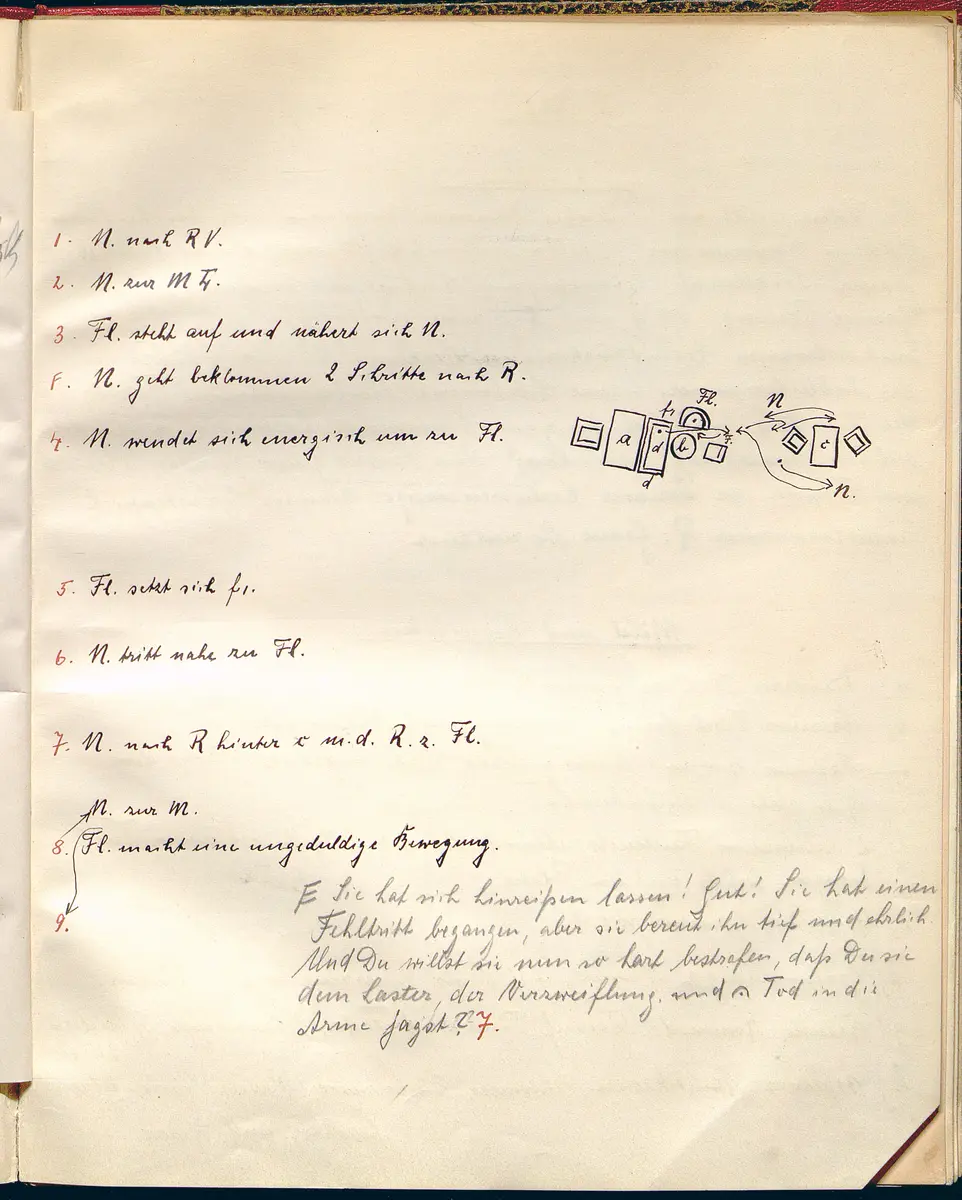 1. N. nach R V.
2. N. zur M
3. Fl. steht auf und nähert sich N.
N. geht beklommen 2 Schritte nach R.
4. N. wendet sich energisch um zu Fl.
f1 Fl. N
a d b c
d N.
5. Fl. setzt sich f1.
6. N. tritt nahe zu Fl.
7. N. nach R hinter c m. d. R. z. Fl.
N. zur M.
8. Fl. macht eine ungeduldige Bewegung.
9.
Sie hat sich hinreißen lassen! Gut! Sie hat einen
Fehltritt begangen, aber sie bereut ihn tief und ehrlich.
Und Du willst sie nun so hart bestrafen, daß Du sie
dem Laster, der Verzweiflung, und Tod in die
Arme jagst? 7.